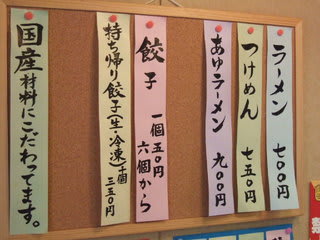 ラーメン 七〇〇円
つけめん 七五〇円
あゆラーメン 九〇〇円
餃子 一個五〇円
六個から
持ち帰り餃子(生・冷凍)十個
三五〇円
国産材料にこだわってます。